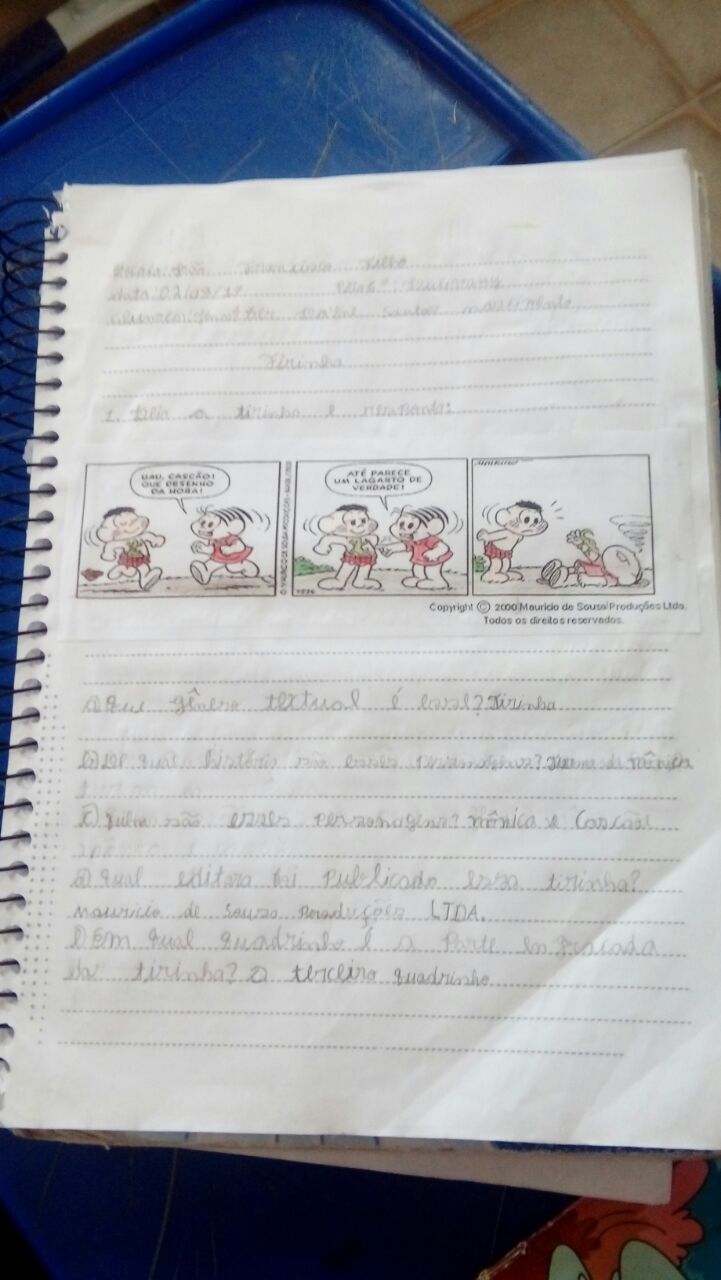 data: 02/09/19
Tirinha
1. Leia a tirinha e responda:
UAU, CASCÃO!
QUE DESENHO
DA HORA!
ATÉ PARECE
UM LAGARTO DE
VERDADE!
Copyright © 2000 Mauricio de Sousa Produções Ltda.
Todos os direitos reservados.
a) Que gênero textual é esse? Tirinha
b) De qual história são esses personagens? Turma da Mônica
c) Quem são esses personagens? Mônica e Cascão
d) Qual editora foi publicado essa tirinha?
Mauricio de Souza Produções LTDA.
Em qual quadrinho é a parte engraçada
da tirinha? O terceiro quadrinho